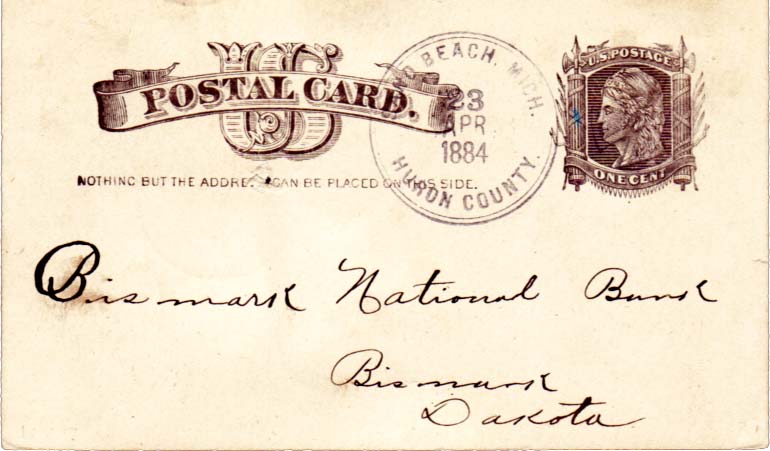 US
POSTAL CARD.
NOTHING BUT THE ADDRESS CAN BE PLACED ON THIS SIDE.
BEACH, MICH.
23
APR
1884
HURON COUNTY.
U.S. POSTAGE
ONE CENT
Bismark National Bank
Bismark
Dakota